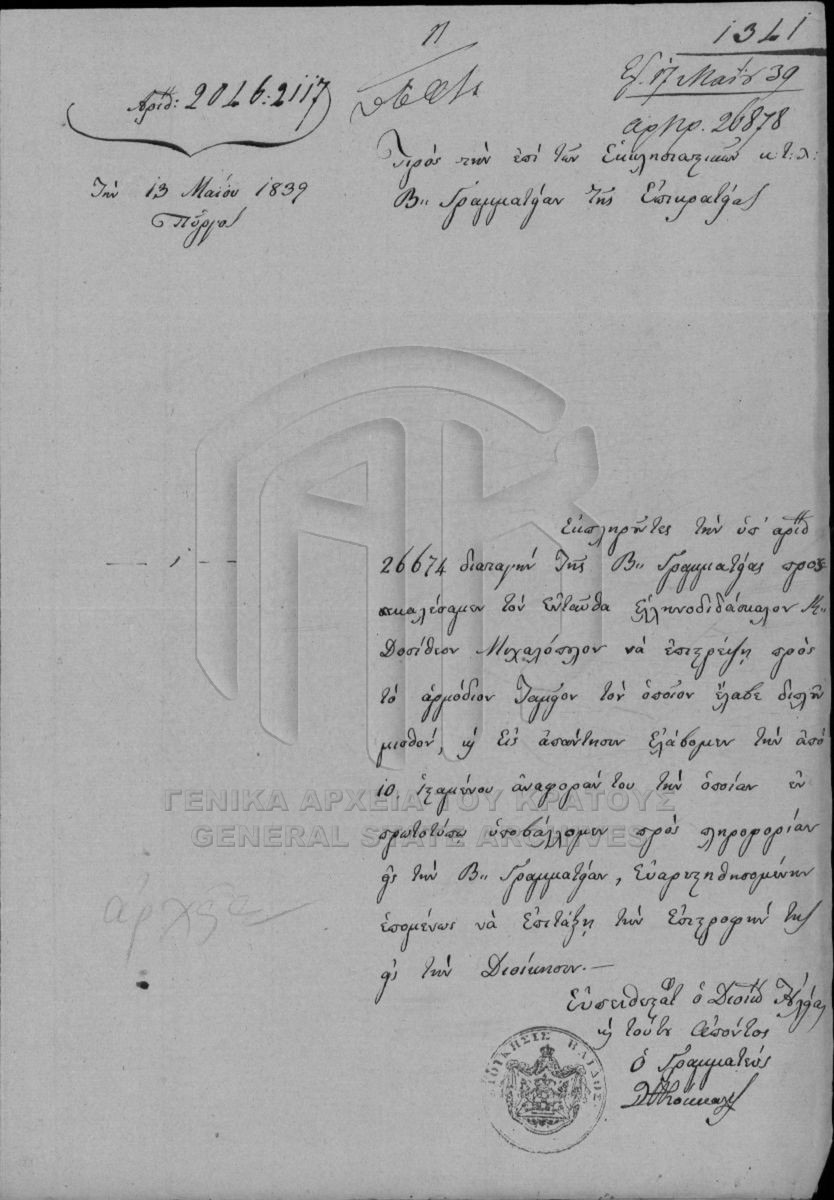 1341
Ἀριθ: 2046:2117
Ἐλ. 17 Μαΐου 39
ἀρ πρ. 26878
Πρὸς τὴν ἐπὶ τῶν Ἐκκλησιαστικῶν κ:τ:λ:
Τὴν 13 Μαΐου 1839
Β.. Γραμματείαν τῆς Ἐπικρατείας
Πύργος
Ἐκπληροῦντες τὴν ὑπ' ἀριθ
26674 διαταγὴν τῆς Β.. Γραμματείας προσ
εκαλέσαμεν τὸν ἐνταῦθα ἑλληνοδιδάσκαλον Κ..
Δοσίθεον Μιχαλόπουλον νὰ ἐπιστρέψῃ πρὸς
τὸ ἁρμόδιον Ταμεῖον τὸν ὁποῖον ἔλαβε διπλοῦν
μισθόν, καὶ εἰς ἀπάντησιν ἐλάβομεν τὴν ἀπὸ
10. ἱσταμένου ἀναφοράν του τὴν ὁποίαν ἐν
ΓΕΝΙΚΑ ΑΡΧΕΙΑ ΤΟΥ ΚΡΑΤΟΥΣ
GENERAL STATE ARCHIVES
πρωτοτύπῳ ὑποβάλλομεν πρὸς πληροφορίαν
εἰς τὴν Β.. Γραμματείαν, εὐαρεστηθησομένην
ἑπομένως νὰ ἐπιτάξῃ τὴν ἐπιστροφήν της
εἰς τὴν Διοίκησιν.—
ἀρχεῖα
Εὐπειθέστατ ὁ Διοικ Ἠλείας
καὶ τούτου ἀπόντος
ὁ Γραμματεύς
ΔΙΟΙΚΗΣΙΣ ΗΛΙΔΟΣ